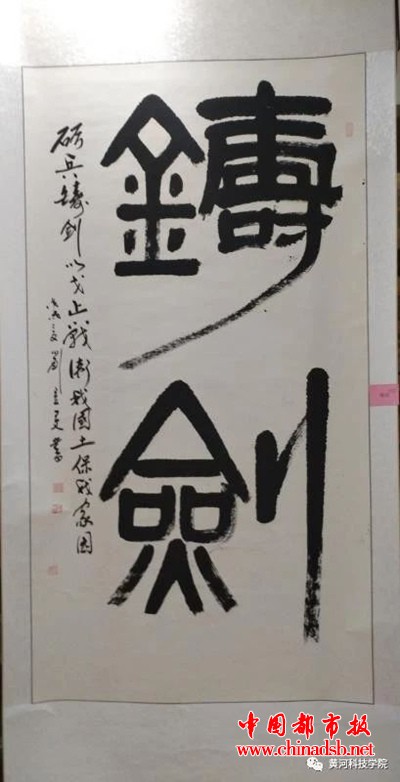 鑄劍
砺兵铸剑以戈止戰衛我國土保我家园
中国都市报
www.chinadsb.net
黄河科技学院